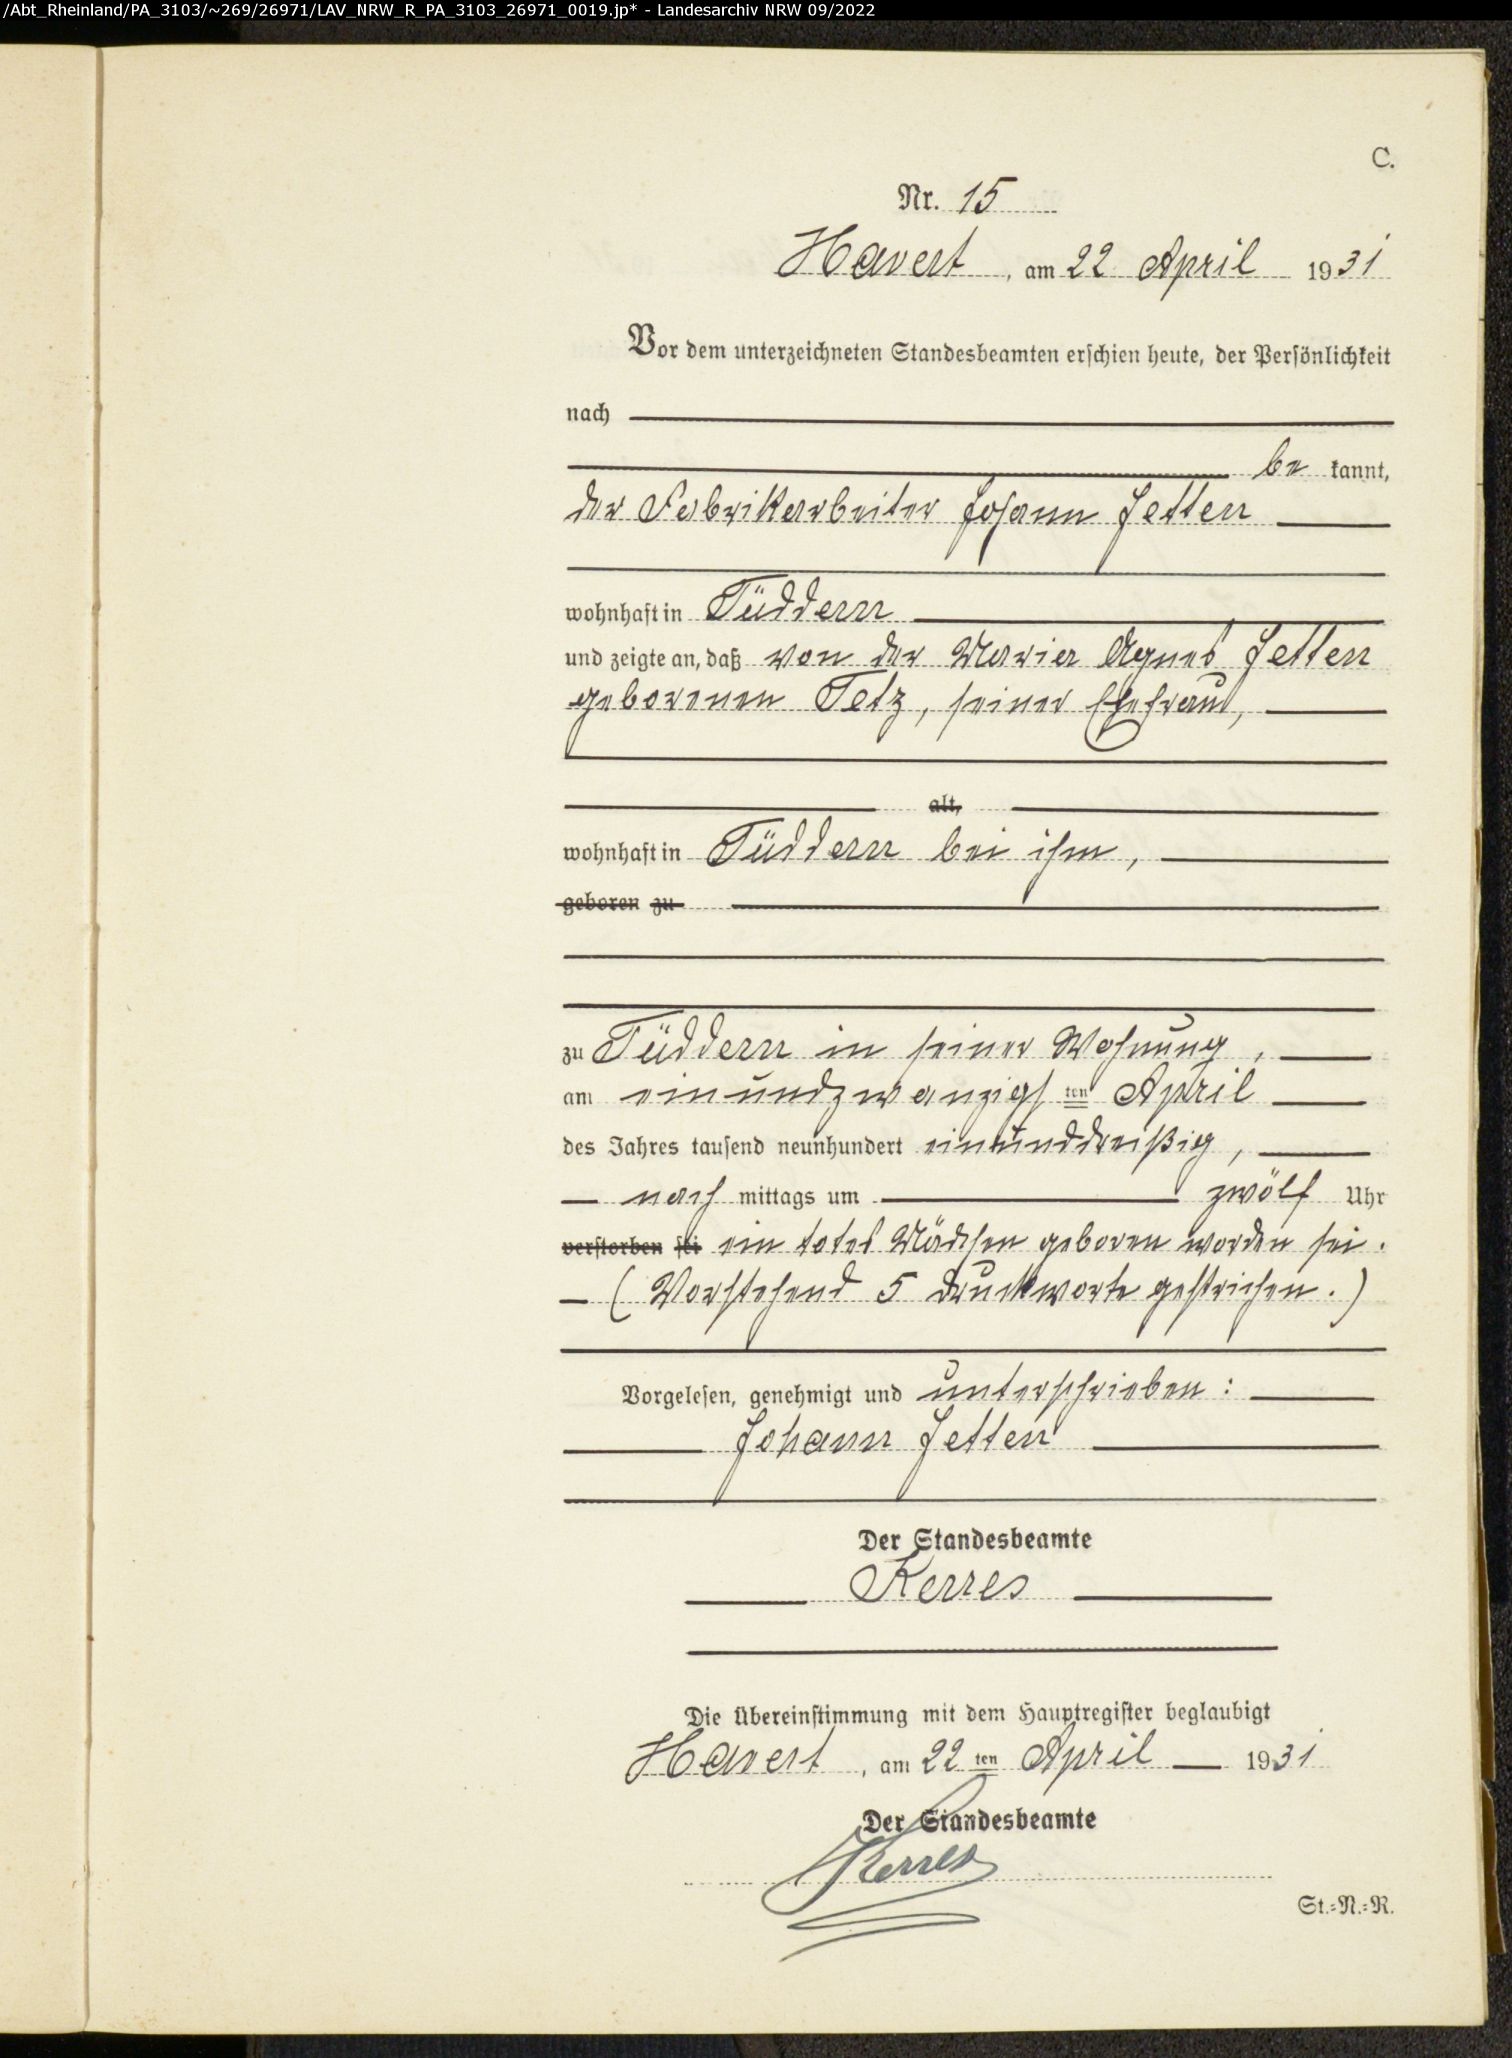 /Abt_Rheinland/PA_3103/~269/26971/LAV_NRW_R_PA_3103_26971_0019.jp* - Landesarchiv NRW 09/2022
C.
Nr. 15
Havert, am 22 April 1931
Vor dem unterzeichneten Standesbeamten erschien heute, der Persönlichkeit
nach
be kannt,
der Fabrikarbeiter Johann Jetten
wohnhaft in Tüddern
und zeigte an, daß von der Maria Agnes Jetten
geborenen Tetz, seiner Ehefrau,
alt,
wohnhaft in Tüddern bei ihm,
geboren zu
zu Tüddern in seiner Wohnung,
am einundzwanzigsten April
des Jahres tausend neunhundert einunddreißig,
nach mittags um zwölf Uhr
verstorben sei ein totes Mädchen geboren worden sei.
(Vorstehend 5 Druckworte gestrichen.)
Vorgelesen, genehmigt und unterschrieben:
Johann Jetten
Der Standesbeamte
Kerres
Die Übereinstimmung mit dem Hauptregister beglaubigt
Havert, am 22ten April 1931
Der Standesbeamte
Kerres
St.=N.=R.